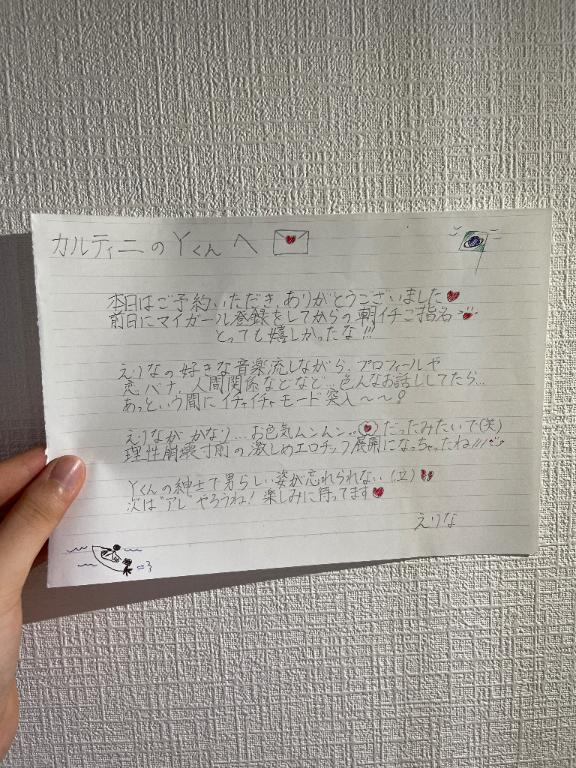 カルティニのYくんへ
本日はご予約いただき、ありがとうございました
前日にマイガール登録をしてからの朝イチご指名
とっても嬉しかったな!!!
えりなの好きな音楽流しながら、プロフィールや
恋バナ、人間関係などなど…色んなお話ししてたら…
あっという間にイチャイチャモード突入〜〜!
えりながかなり…お色気ムンムン…だったみたいで(笑)
理性崩壊寸前の激しめエロチック展開になっちゃったね///
Yくんの紳士で男らしい姿が忘れられない
次は"アレ"やろうね!楽しみに待ってます
えりな